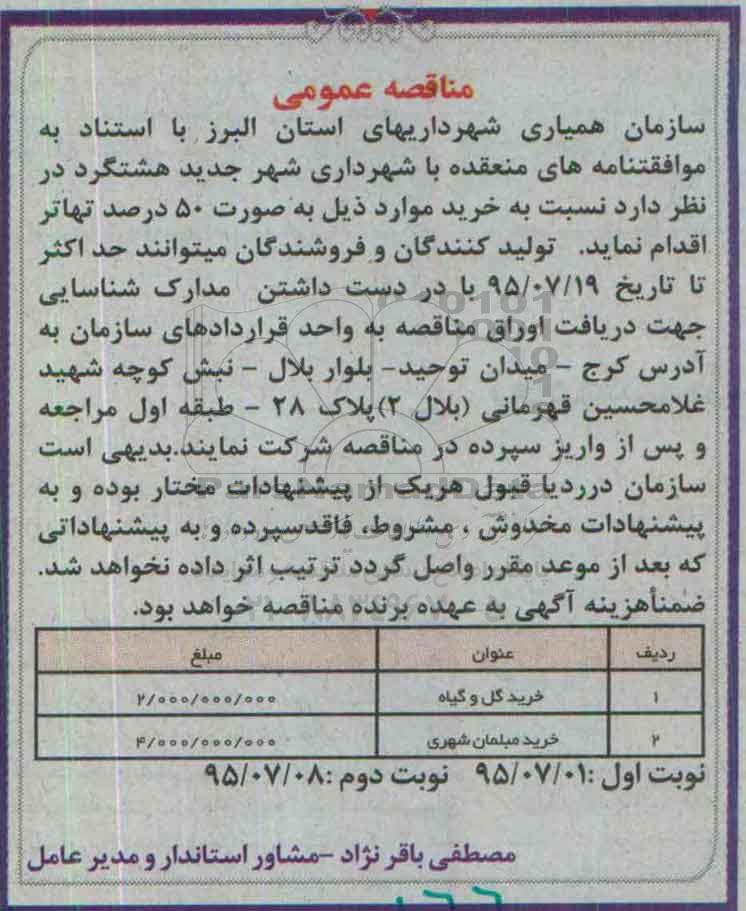 مناقصه عمومی
سازمان همیاری شهرداریهای استان البرز با استناد به
موافقتنامه های منعقده با شهرداری شهر جدید هشتگرد در
نظر دارد نسبت به خرید موارد ذیل به صورت ۵۰ درصد تهاتر
اقدام نماید. تولید کنندگان و فروشندگان میتوانند حد اکثر
تا تاریخ ۹۵/۰۷/۱۹ با در دست داشتن مدارک شناسایی
جهت دریافت اوراق مناقصه به واحد قراردادهای سازمان به
آدرس کرج - میدان توحید- بلوار بلال - نبش کوچه شهید
غلامحسین قهرمانی (بلال ۲)پلاک ۲۸ - طبقه اول مراجعه
و پس از واریز سپرده در مناقصه شرکت نمایند.بدیهی است
سازمان درردیا قبول هریک از پیشنهادات مختار بوده و به
پیشنهادات مخدوش ، مشروط، فاقدسپرده و به پیشنهاداتی
که بعد از موعد مقرر واصل گردد ترتیب اثر داده نخواهد شد.
ضمنأهزینه آگهی به عهده برنده مناقصه خواهد بود.
ردیف عنوان مبلغ
۱ خرید گل و گیاه ۲/۰۰۰/۰۰۰/۰۰۰
۲ خرید مبلمان شهری ۴/۰۰۰/۰۰۰/۰۰۰
نوبت اول :۹۵/۰۷/۰۱ نوبت دوم :۹۵/۰۷/۰۸
مصطفی باقر نژاد -مشاور استاندار و مدیر عامل